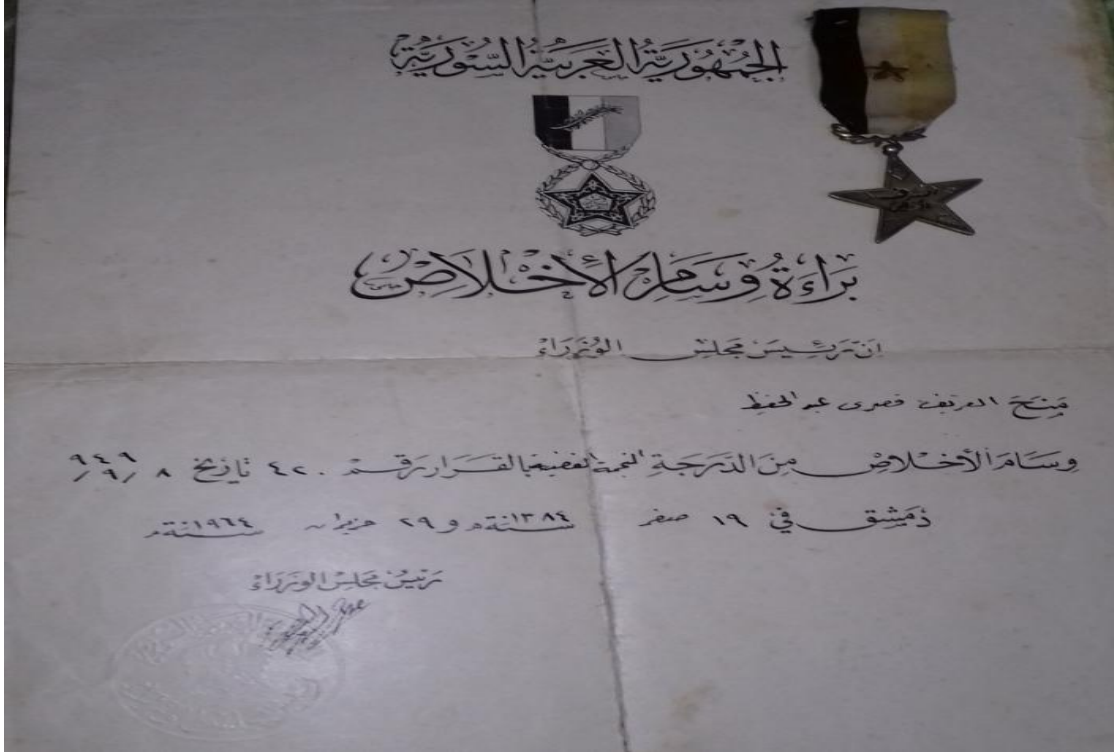 الجُمْهُورِيَّةُ الْعَرَبِيَّةُ السُّورِيَّةُ
بَرَاءَةُ وِسَامِ الأِخْلَاصِ
ان رئيس مجلس الوزراء
منح العريف فصرى عبد الحفيظ
وسام الأخلاص من الدرجة النجمة الفضية بالقرار رقم ٤٢٠ تاريخ ٨ / ٩ / ٩٤٩
دمشق في ١٩ صفر سنة ١٣٨٤ هـ و ٢٩ حزيران سنة ١٩٦٤ م
رئيس مجلس الوزراء